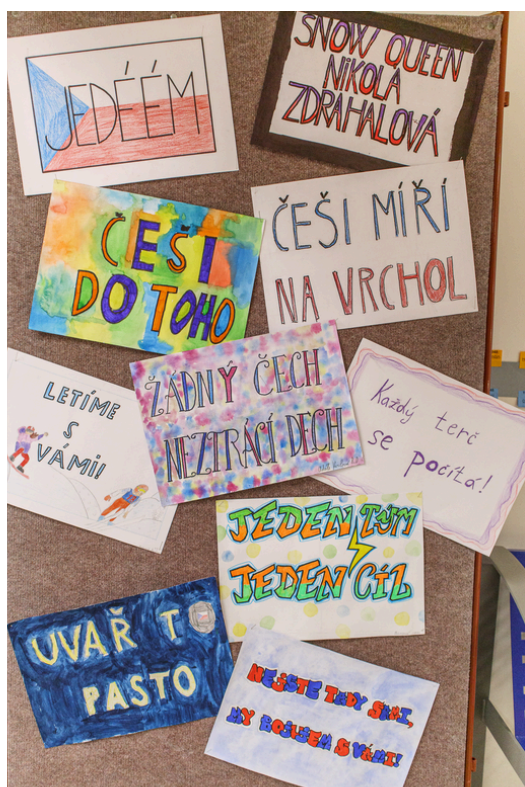 JEDÉÉM
SNOW QUEEN
NIKOLA
ZDRAHALOVÁ
ČEŠI
DO TOHO
ČEŠI MÍŘÍ
NA VRCHOL
LETÍME
S
VÁMI!
ŽÁDNÝ ČECH
NEZTRÁCÍ DECH
Každý terč
se počítá!
JEDEN TÝM
JEDEN CÍL
UVAŘ TO
PASTO
NEJSTE TADY SAMI,
MY BOJUJEM S VÁMI!